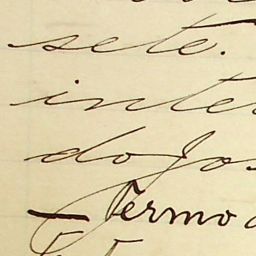 sete.
inte
do Jos
Termo